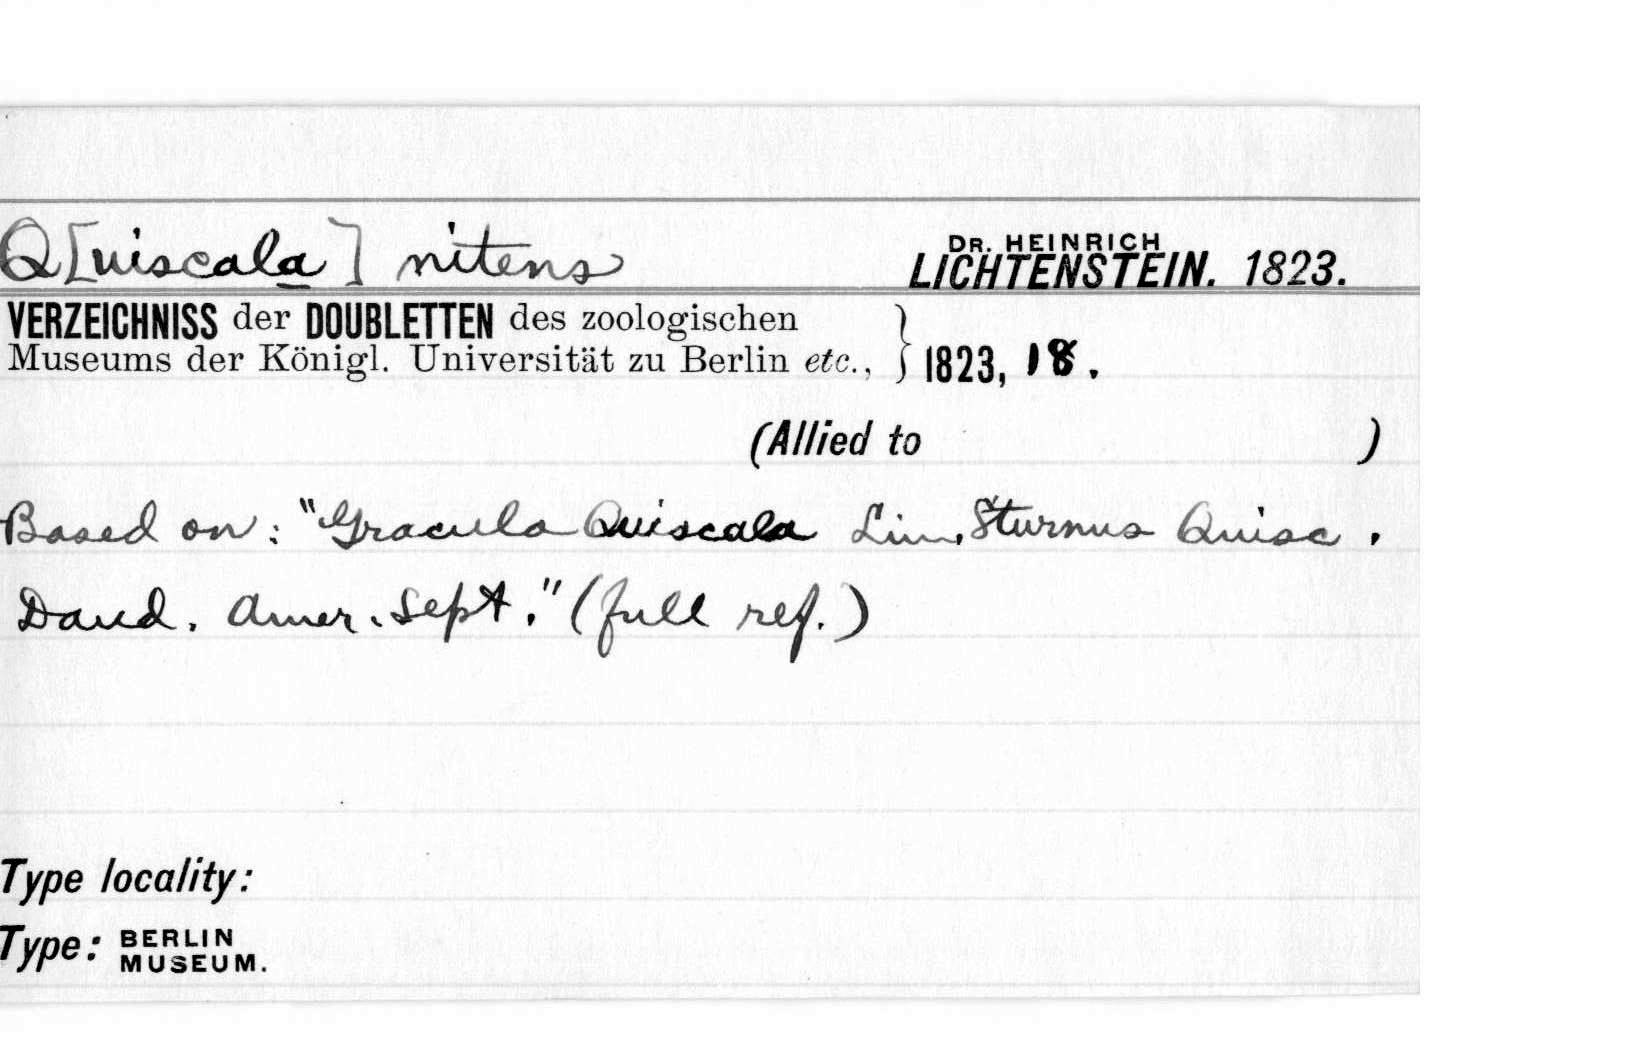 Q[uiscala] nitens DR. HEINRICH LICHTENSTEIN. 1823.
VERZEICHNISS der DOUBLETTEN des zoologischen
Museums der Königl. Universität zu Berlin etc., } 1823, 18.
(Allied to )
Based on: "Gracula Quiscala Lin. Sturnus Quisc.
Daud. Amer. Sept." (full ref.)
Type locality:
Type: BERLIN MUSEUM.